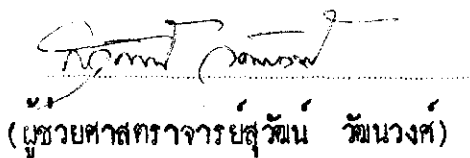 (ผู้ช่วยศาสตราจารย์สุวัฒน์ วัฒนวงศ์)